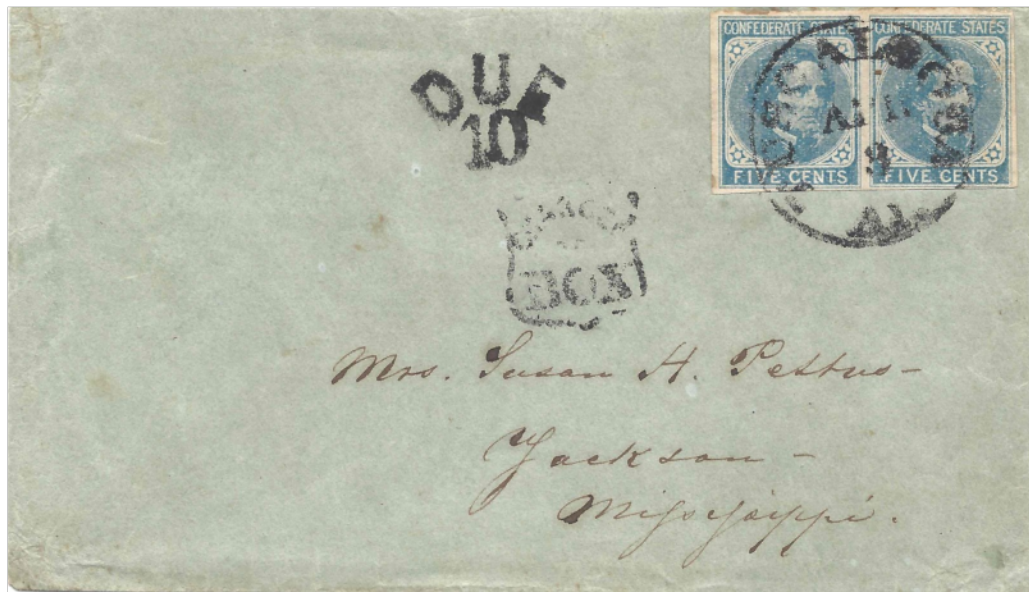 CONFEDERATE STATES
FIVE CENTS
CONFEDERATE STATES
FIVE CENTS
DUE
10
BOX
Mrs. Susan H. Pettus-
Jackson-
Mississippi.